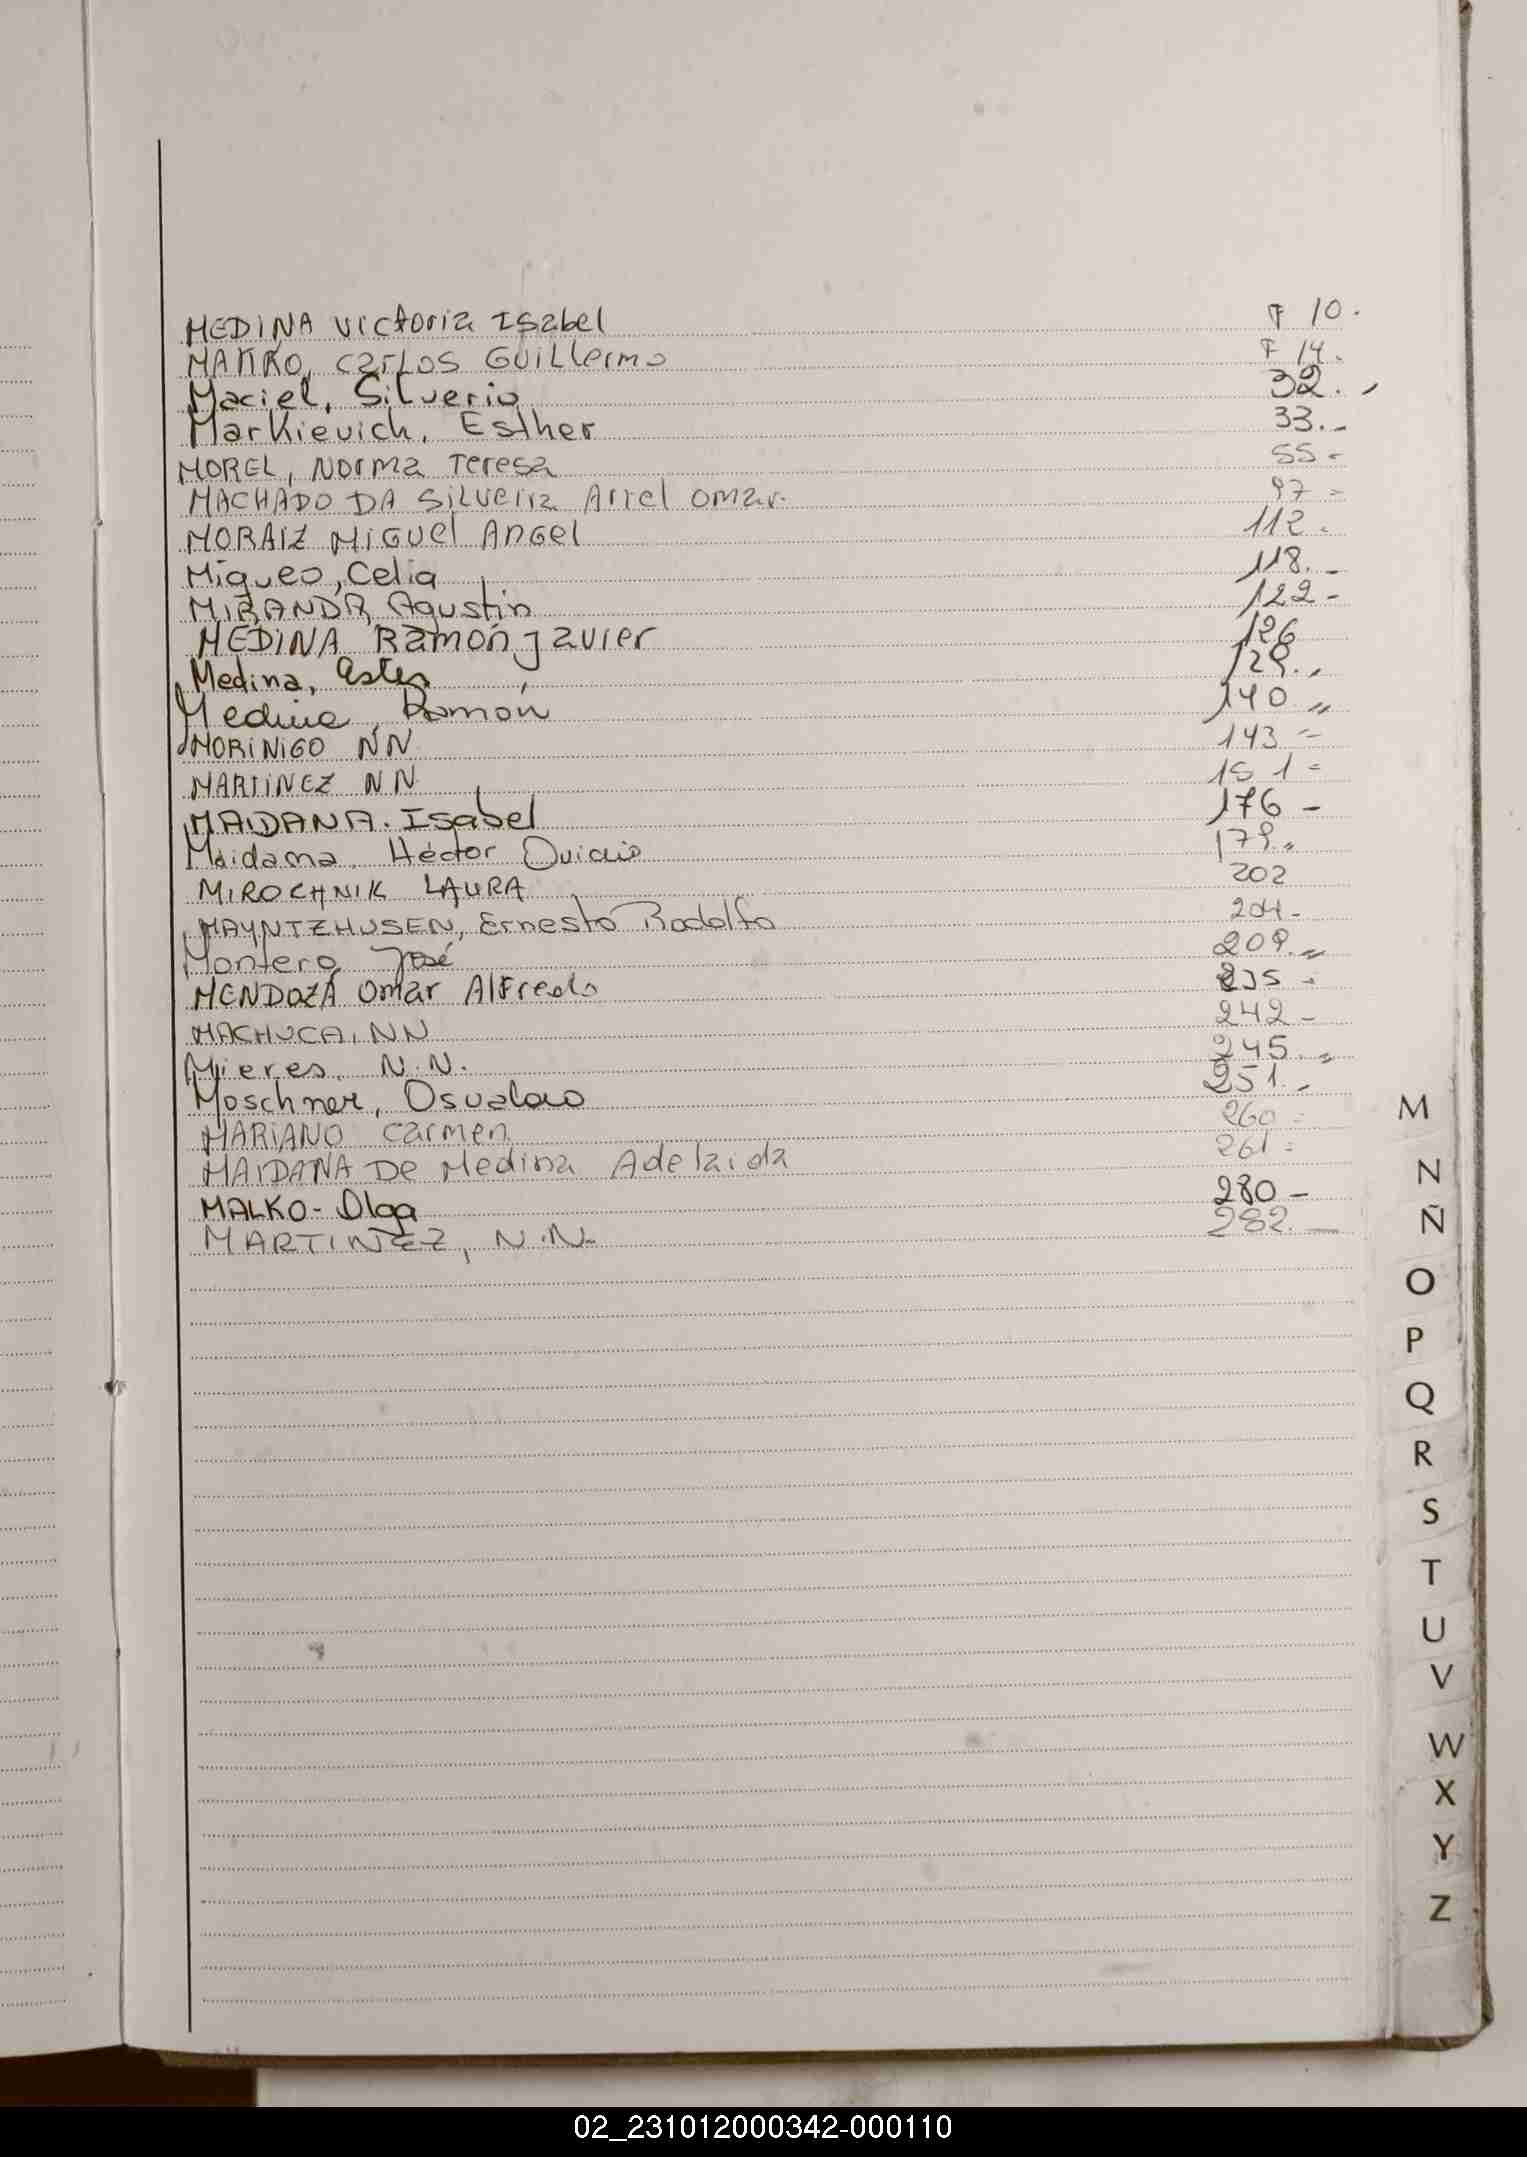 MEDINA Victoria Isabel F 10.
MAKKO, Carlos Guillermo F 14.
Maciel, Silverio 32.-
Markievich, Esther 33.-
MOREL, Norma Teresa 55-
MACHADO DA Silveira Ariel Omar. 97-
MORAIZ Miguel Angel 112.
Migueo, Celia 118.-
MIRANDA, Agustín 122-
MEDINA Ramón Javier 126
Medina, Ester 129.,
Medina, Ramón 140 "
MORINIGO NN 143-
MARTINEZ NN 151-
MAIDANA. Isabel 176-
Maidama, Héctor Ovidio 179."
MIROCHNIK LAURA 202
MAYNTZHUSEN, Ernesto Rodolfo 204-
Montero José 209."
MENDOZA Omar Alfredo 235-
MACHUCA, NN 242-
Mieres, N.N. 245."
Moschner, Osvaldo 251.-
MARIANO Carmen 260-
MAIDANA De Medina Adelaida 261-
MALKO- Olga 280-
MARTINEZ, N.N- 282.-
M
N
Ñ
O
P
Q
R
S
T
U
V
W
X
Y
Z
02_231012000342-000110